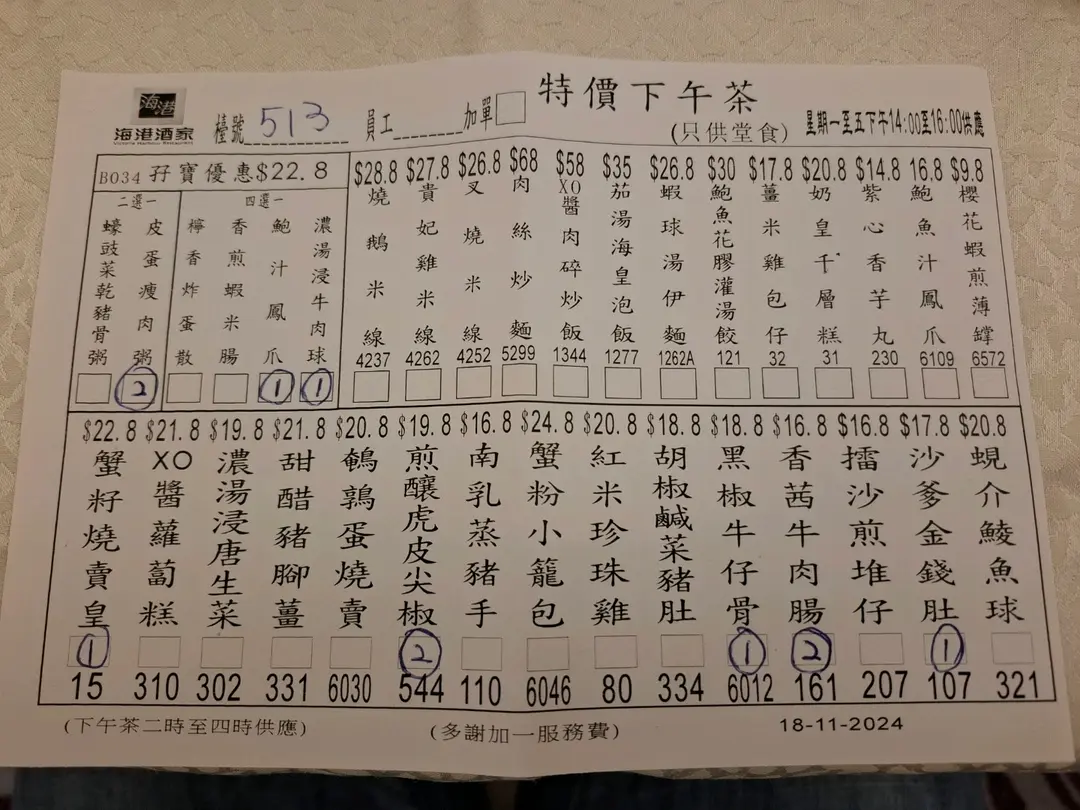 海港
海港酒家
Victoria Harbour Restaurant
檯號 513
員工
加單
特價下午茶
(只供堂食)
星期一至五下午14:00至16:00供應
B034 孖寶優惠$22.8
二選一
四選一
蠔豉菜乾豬骨粥
皮蛋瘦肉粥 2
檸香炸蛋散
香煎蝦米腸
鮑汁鳳爪 1
濃湯浸牛肉球 1
$28.8 燒鵝米線 4237
$27.8 貴妃雞米線 4262
$26.8 叉燒米線 4252
$68 肉絲炒麵 5299
$58 XO醬肉碎炒飯 1344
$35 茄湯海皇泡飯 1277
$26.8 蝦球湯伊麵 1262A
$30 鮑魚花膠灌湯餃 121
$17.8 薑米雞包仔 32
$20.8 奶皇千層糕 31
$14.8 紫心香芋丸 230
16.8 鮑魚汁鳳爪 6109
$9.8 櫻花蝦煎薄罉 6572
$22.8 蟹籽燒賣皇 1 15
$21.8 XO醬蘿蔔糕 310
$19.8 濃湯浸唐生菜 302
$21.8 甜醋豬腳薑 331
$20.8 鵪鶉蛋燒賣 6030
$19.8 煎釀虎皮尖椒 2 544
$16.8 南乳蒸豬手 110
$24.8 蟹粉小籠包 6046
$20.8 紅米珍珠雞 80
$18.8 胡椒鹹菜豬肚 334
$18.8 黑椒牛仔骨 1 6012
$16.8 香茜牛肉腸 2 161
$16.8 擂沙煎堆仔 207
$17.8 沙爹金錢肚 1 107
$20.8 蜆介鯪魚球 321
(下午茶二時至四時供應)
(多謝加一服務費)
18-11-2024